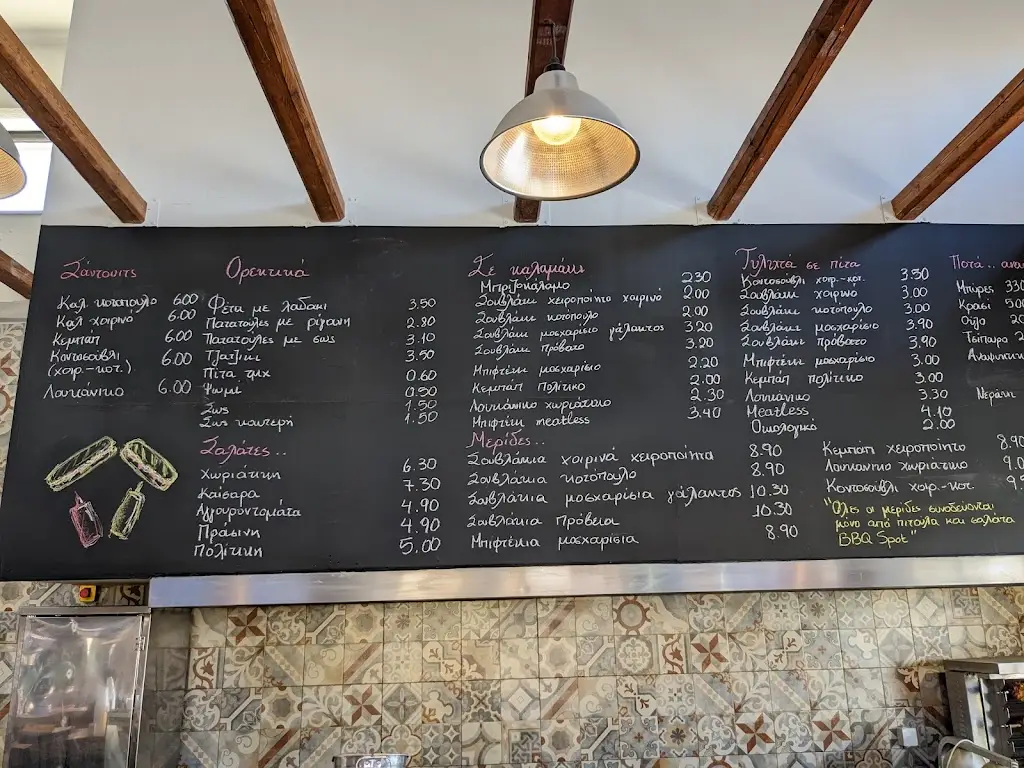 Σάντουιτς
Καλ. κοτόπουλο 6.00
Καλ χοιρινό 6.00
Κεμπαπ 6.00
Κοντοσούβλι
(χοιρ.-κοτ.) 6.00
Λουκάνικο 6.00
Ορεκτικά
Φέτα με λαδάκι 3.50
Πατατούλες με ρίγανη 2.80
Πατατούλες με σως 3.10
Τζατζίκι 3.50
Πίτα τμχ 0.60
Ψωμί 0.50
Σως 1.50
Σως καυτερή 1.50
Σαλάτες..
Χωριάτικη 6.30
Καίσαρα 7.30
Αγγουροντομάτα 4.90
Πράσινη 4.90
Πολίτικη 5.00
Σε καλαμάκι
Μπριζοκάλαμο 2.30
Σουβλάκι χειροποίητο χοιρινό 2.00
Σουβλάκι κοτόπουλο 2.00
Σουβλάκι μοσχαρίσιο γάλακτος 3.20
Σουβλάκι πρόβατο 3.20
Μπιφτέκι μοσχαρίσιο 2.20
Κεμπάπ Πολίτικο 2.00
Λουκάνικο χωριάτικο 2.30
Μπιφτέκι meatless 3.40
Μερίδες..
Σουβλάκια χοιρινά χειροποίητα 8.90
Σουβλάκια κοτόπουλο 8.90
Σουβλάκια μοσχαρίσια γάλακτος 10.30
Σουβλάκια πρόβεια 10.30
Μπιφτέκια μοσχαρίσια 8.90
Τυλιχτά σε πίτα
Κοντοσούβλι χοιρ.-κοτ. 3.30
Σουβλάκι χοιρινό 3.00
Σουβλάκι κοτόπουλο 3.00
Σουβλάκι μοσχαρίσιο 3.90
Σουβλάκι πρόβατο 3.90
Μπιφτέκι μοσχαρίσιο 3.00
Κεμπάπ πολίτικο 3.00
Λουκάνικο 3.30
Meatless 4.10
Οικολογικό 2.00
Κεμπαπ χειροποίητο 8.90
Λουκάνικο χωριάτικο 9.0
Κοντοσούβλι χοιρ.-κοτ. 9.5
"Όλες οι μερίδες συνοδεύονται
μόνο από πιτούλα και σαλάτα
BBQ Spot"
Ποτά..
Μπύρες 330
Κρασί 500
Ούζο 20
Τσίπουρο 2